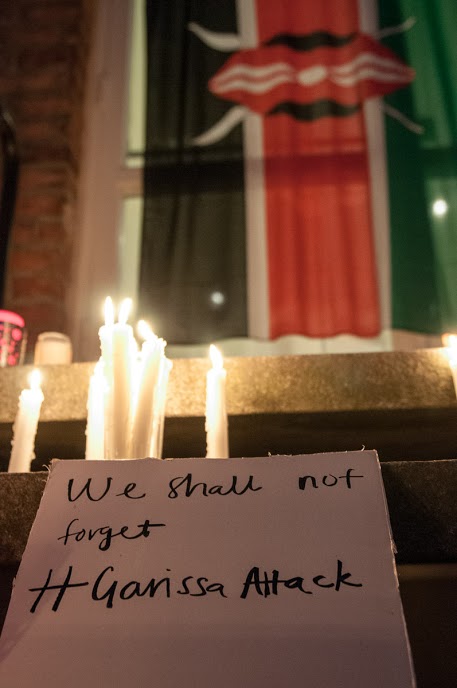 We shall not
forget
#Garissa Attack